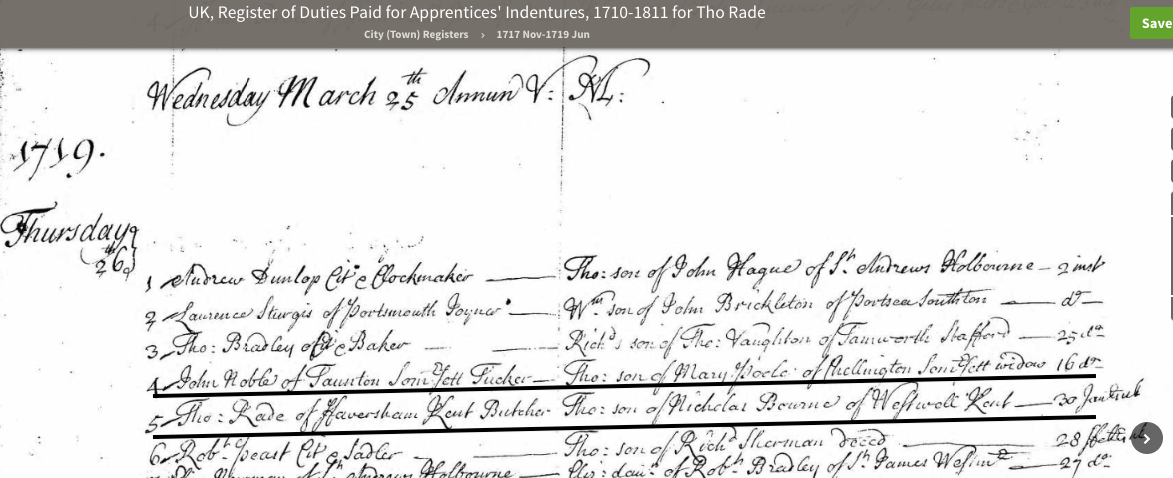 UK, Register of Duties Paid for Apprentices' Indentures, 1710-1811 for Tho Rade
City (Town) Registers › 1717 Nov-1719 Jun
Save
Wednesday March 25th Annun V: M:
1719.
Thursday 26
1 Andrew Dunlop Cit & Clockmaker — Tho: son of John Hague of St. Andrews Holbourne – 2 inst
2 Laurence Sturgis of Portsmouth Joyner — Wm son of John Brickleton of Portsea Southton — do
3 Tho: Bradley Cit & Baker — Richd son of Tho: Vaughton of Tamworth Stafford — 25 do
4 John Noble of Taunton Somsett Tucker — Tho: son of Mary Poole of Somsett widow 16 do
5 Tho: Rade of Faversham Kent Butcher Tho: son of Nicholas Bourne of Westwell Kent — 30
6 Robt Peast Cit & Sadler — Tho: son of Richd Sherman deced — 28
of St Andrews Holbourne — Eliz: daur of Robt Bradley of St James Westmr — 27 do